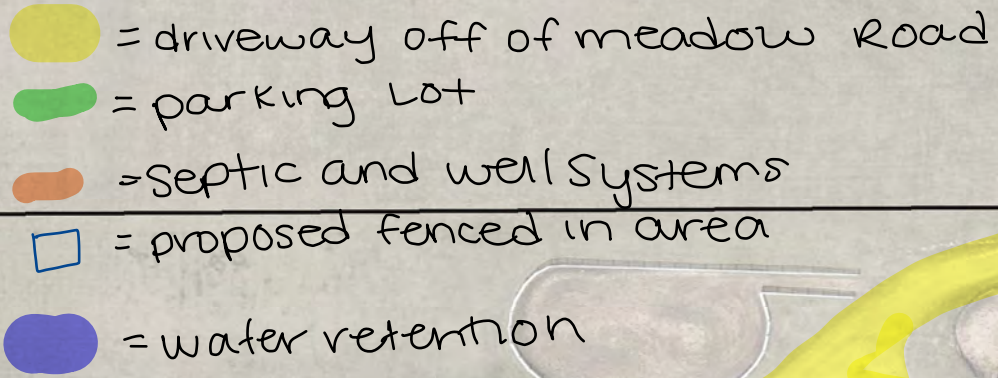 = driveway off of meadow Road
= parking Lot
= septic and well systems
= proposed fenced in area
= water retention